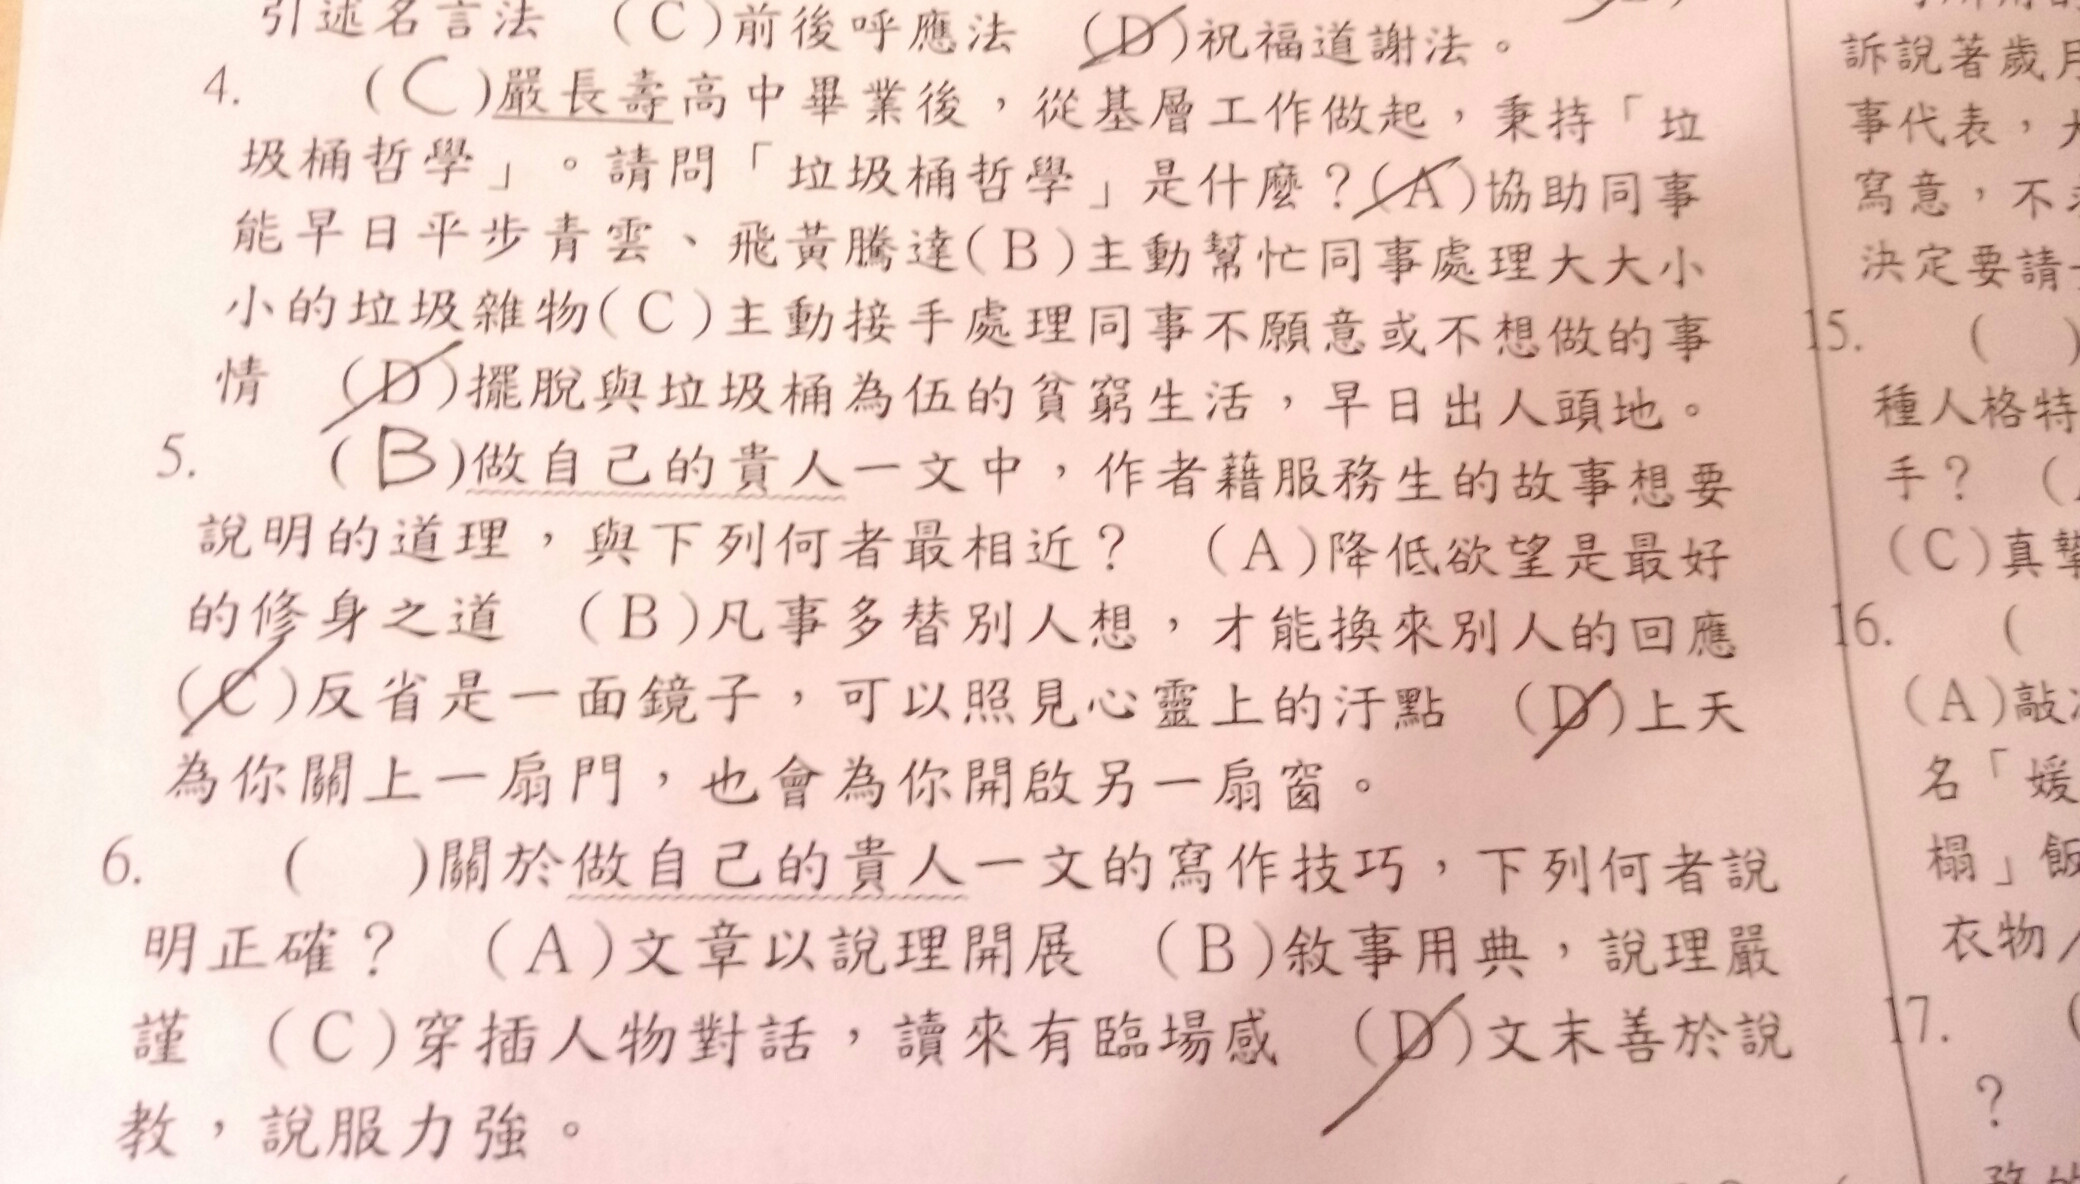 引述名言法 (C)前後呼應法 (D)祝福道謝法。
4. (C)嚴長壽高中畢業後，從基層工作做起，秉持「垃
圾桶哲學」。請問「垃圾桶哲學」是什麼？(A)協助同事
能早日平步青雲、飛黃騰達(B)主動幫忙同事處理大大小
小的垃圾雜物(C)主動接手處理同事不願意或不想做的事
情 (D)擺脫與垃圾桶為伍的貧窮生活，早日出人頭地。
5. (B)做自己的貴人一文中，作者藉服務生的故事想要
說明的道理，與下列何者最相近？ (A)降低欲望是最好
的修身之道 (B)凡事多替別人想，才能換來別人的回應
(C)反省是一面鏡子，可以照見心靈上的汙點 (D)上天
為你關上一扇門，也會為你開啟另一扇窗。
6. ( )關於做自己的貴人一文的寫作技巧，下列何者說
明正確？ (A)文章以說理開展 (B)敘事用典，說理嚴
謹 (C)穿插人物對話，讀來有臨場感 (D)文末善於說
教，說服力強。
訴說著歲月
事代表，
寫意，不
決定要請
15. ( )
種人格特
手？ (
(C)真摯
16. (
(A)敲
名「媛
榻」飯
衣物
17. (
？